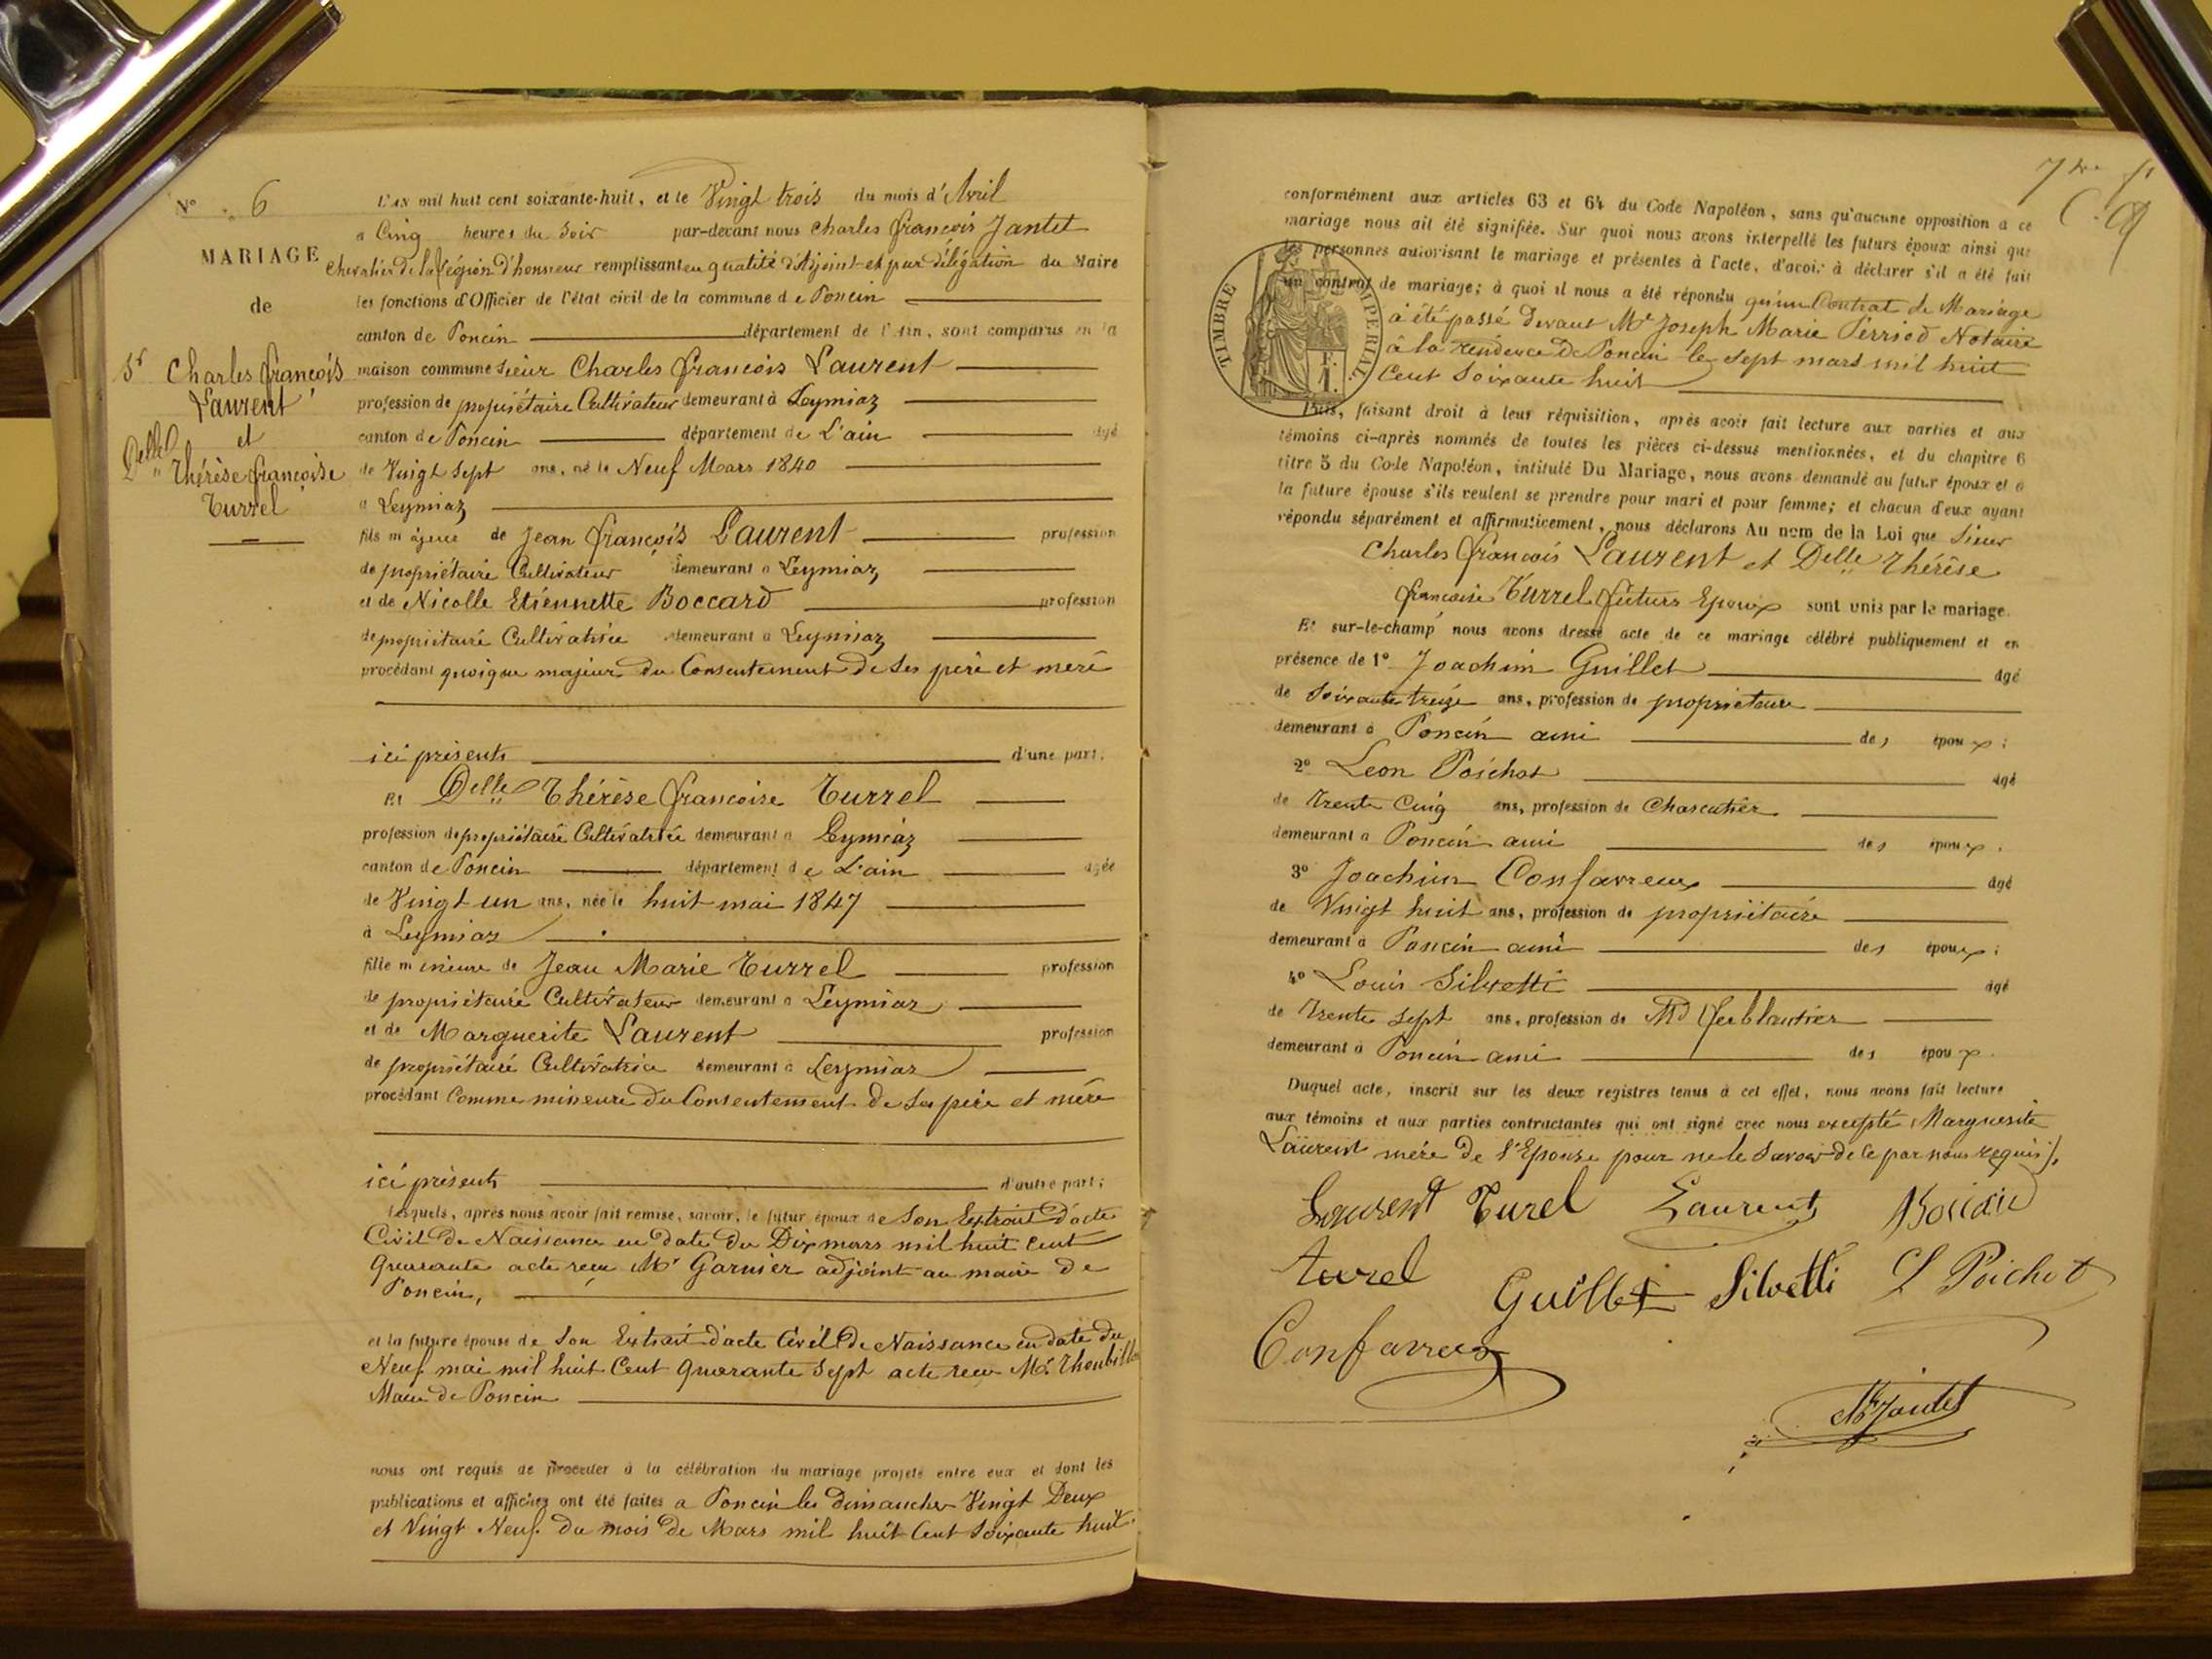 N° 6
MARIAGE
de
Sr Charles françois
Laurent
et
Delle Thérèse françoise
Turrel
L'an mil huit cent soixante-huit, et le Vingt trois du mois d'Avril
a Cinq heures du Soir par-devant nous Charles françois Jantet
Chevalier de la légion d'honneur remplissant en qualité d'Adjoint et par délégation du Maire
les fonctions d'Officier de l'état civil de la commune de Poncin
canton de Poncin département de l'Ain, sont comparus en la
maison commune Sieur Charles françois Laurent
profession de propriétaire Cultivateur demeurant à Leymiaz
canton de Poncin département de L'ain agé
de Vingt Sept ans, né le Neuf Mars 1840
a Leymiaz
fils majeur de Jean françois Laurent profession
de propriétaire Cultivateur demeurant a Leymiaz
et de Nicolle Etiennette Boccard profession
de propriétaire Cultivatrice demeurant a Leymiaz
procédant quoique majeur du Consentement de Ses père et mère
ici présents d'une part.
Et Delle Thérèse françoise Turrel
profession de propriétaire Cultivatrice demeurant a Leymiaz
canton de Poncin département de L'ain agée
de Vingt un ans, née le huit mai 1847
à Leymiaz
fille mineure de Jean Marie Turrel profession
de propriétaire Cultivateur demeurant a Leymiaz
et de Marguerite Laurent profession
de propriétaire Cultivatrice demeurant a Leymiaz
procédant Comme mineure du Consentement de Ses père et mère
ici présents d'autre part;
lesquels, après nous avoir fait remise, savoir, le futur époux de Son Extrait d'acte
Civil de Naissance en date du Dix mars mil huit Cent
Quarante acte reçu Mr Garnier adjoint au maire de
Poncin,
et la future épouse de Son Extrait d'acte Civil de Naissance en date du
Neuf mai mil huit Cent Quarante Sept acte reçu Mr
Maire de Poncin
nous ont requis de procéder à la célébration du mariage projeté entre eux et dont les
publications et affiches ont été faites a Poncin les dimanches Vingt Deux
et Vingt Neuf du mois de Mars mil huit Cent Soixante huit.
conformément aux articles 63 et 64 du Code Napoléon, sans qu'aucune opposition a ce
mariage nous ait été signifiée. Sur quoi nous avons interpellé les futurs époux ainsi que
les personnes autorisant le mariage et présentes à l'acte, d'avoir à déclarer s'il a été fait
un contrat de mariage; à quoi il nous a été répondu qu'un Contrat de Mariage
à été passé devant Me Joseph Marie Perriod Notaire
à la rendence de Poncin le Sept mars mil huit
Cent Soixante huit
TIMBRE IMPERIAL
Puis, faisant droit à leur réquisition, après avoir fait lecture aux parties et aux
témoins ci-après nommés de toutes les pièces ci-dessus mentionnées, et du chapitre 6
titre 5 du Code Napoléon, intitulé Du Mariage, nous avons demandé au futur époux et a
la future épouse s'ils veulent se prendre pour mari et pour femme; et chacun d'eux ayant
répondu séparément et affirmativement, nous déclarons Au nom de la Loi que Sieur
Charles françois Laurent et Delle Thérèse
françoise Turrel futurs Epoux sont unis par le mariage.
Et sur-le-champ nous avons dressé acte de ce mariage célébré publiquement et en
présence de 1° Joachim Guillet agé
de Soixante treize ans, profession de propriétaire
demeurant à Poncin ami des époux;
2° Leon Poichot agé
de Trente Cinq ans, profession de Charcutier
demeurant a Poncin ami des époux.
3° Joachim Confavreux agé
de Vingt huit ans, profession de propriétaire
demeurant à Poncin ami des époux;
4° Louis Silvetti agé
de Trente Sept ans, profession de Md ferblantier
demeurant à Poncin ami des époux.
Duquel acte, inscrit sur les deux registres tenus à cet effet, nous avons fait lecture
aux témoins et aux parties contractantes qui ont signé avec nous excepté Marguerite
Laurent mère de l'Epouse pour ne le Savoir de ce par nous requis.
Laurent Turel Laurent Boccard
turel Guillet Silvetti L Poichot
Confavreux
Ch Jantet